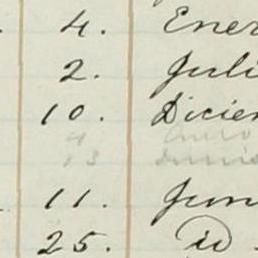 4. Ener
2. Juli
10. Dicie
4
13 Junio
11. Jun
25. id